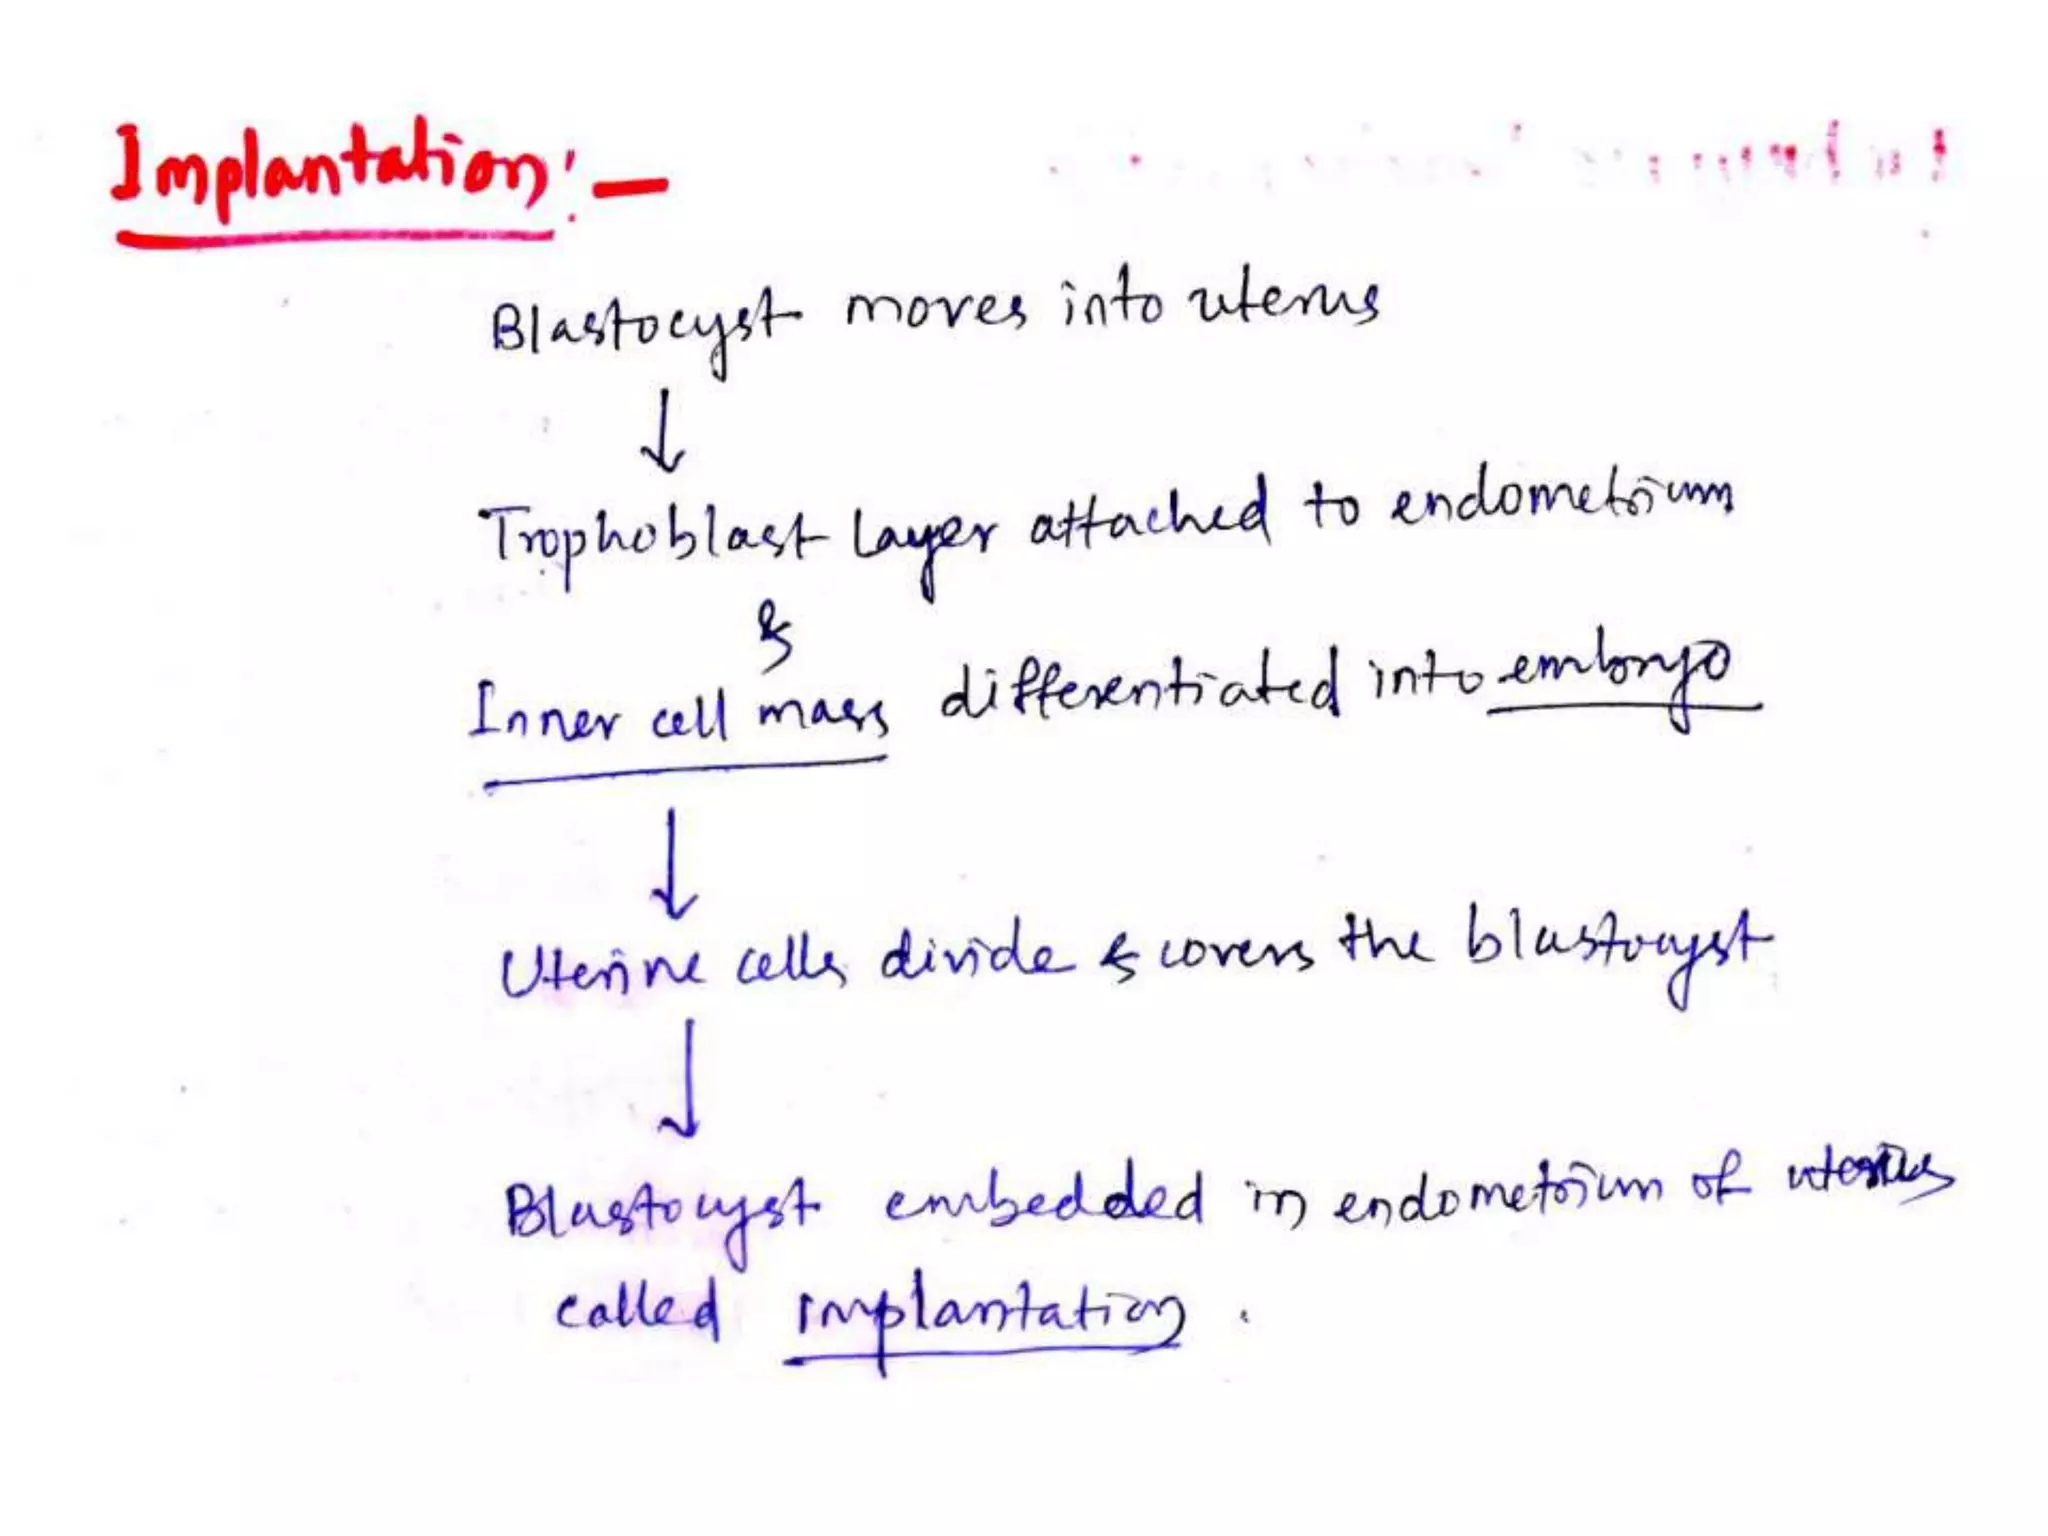 Implantation:-
Blastocyst moves into uterus
↓
Trophoblast Layer attached to endometrium
&
Inner cell mass differentiated into embryo
↓
Uterine cells divide & covers the blastocyst
↓
Blastocyst embedded in endometrium of uterus
called implantation.